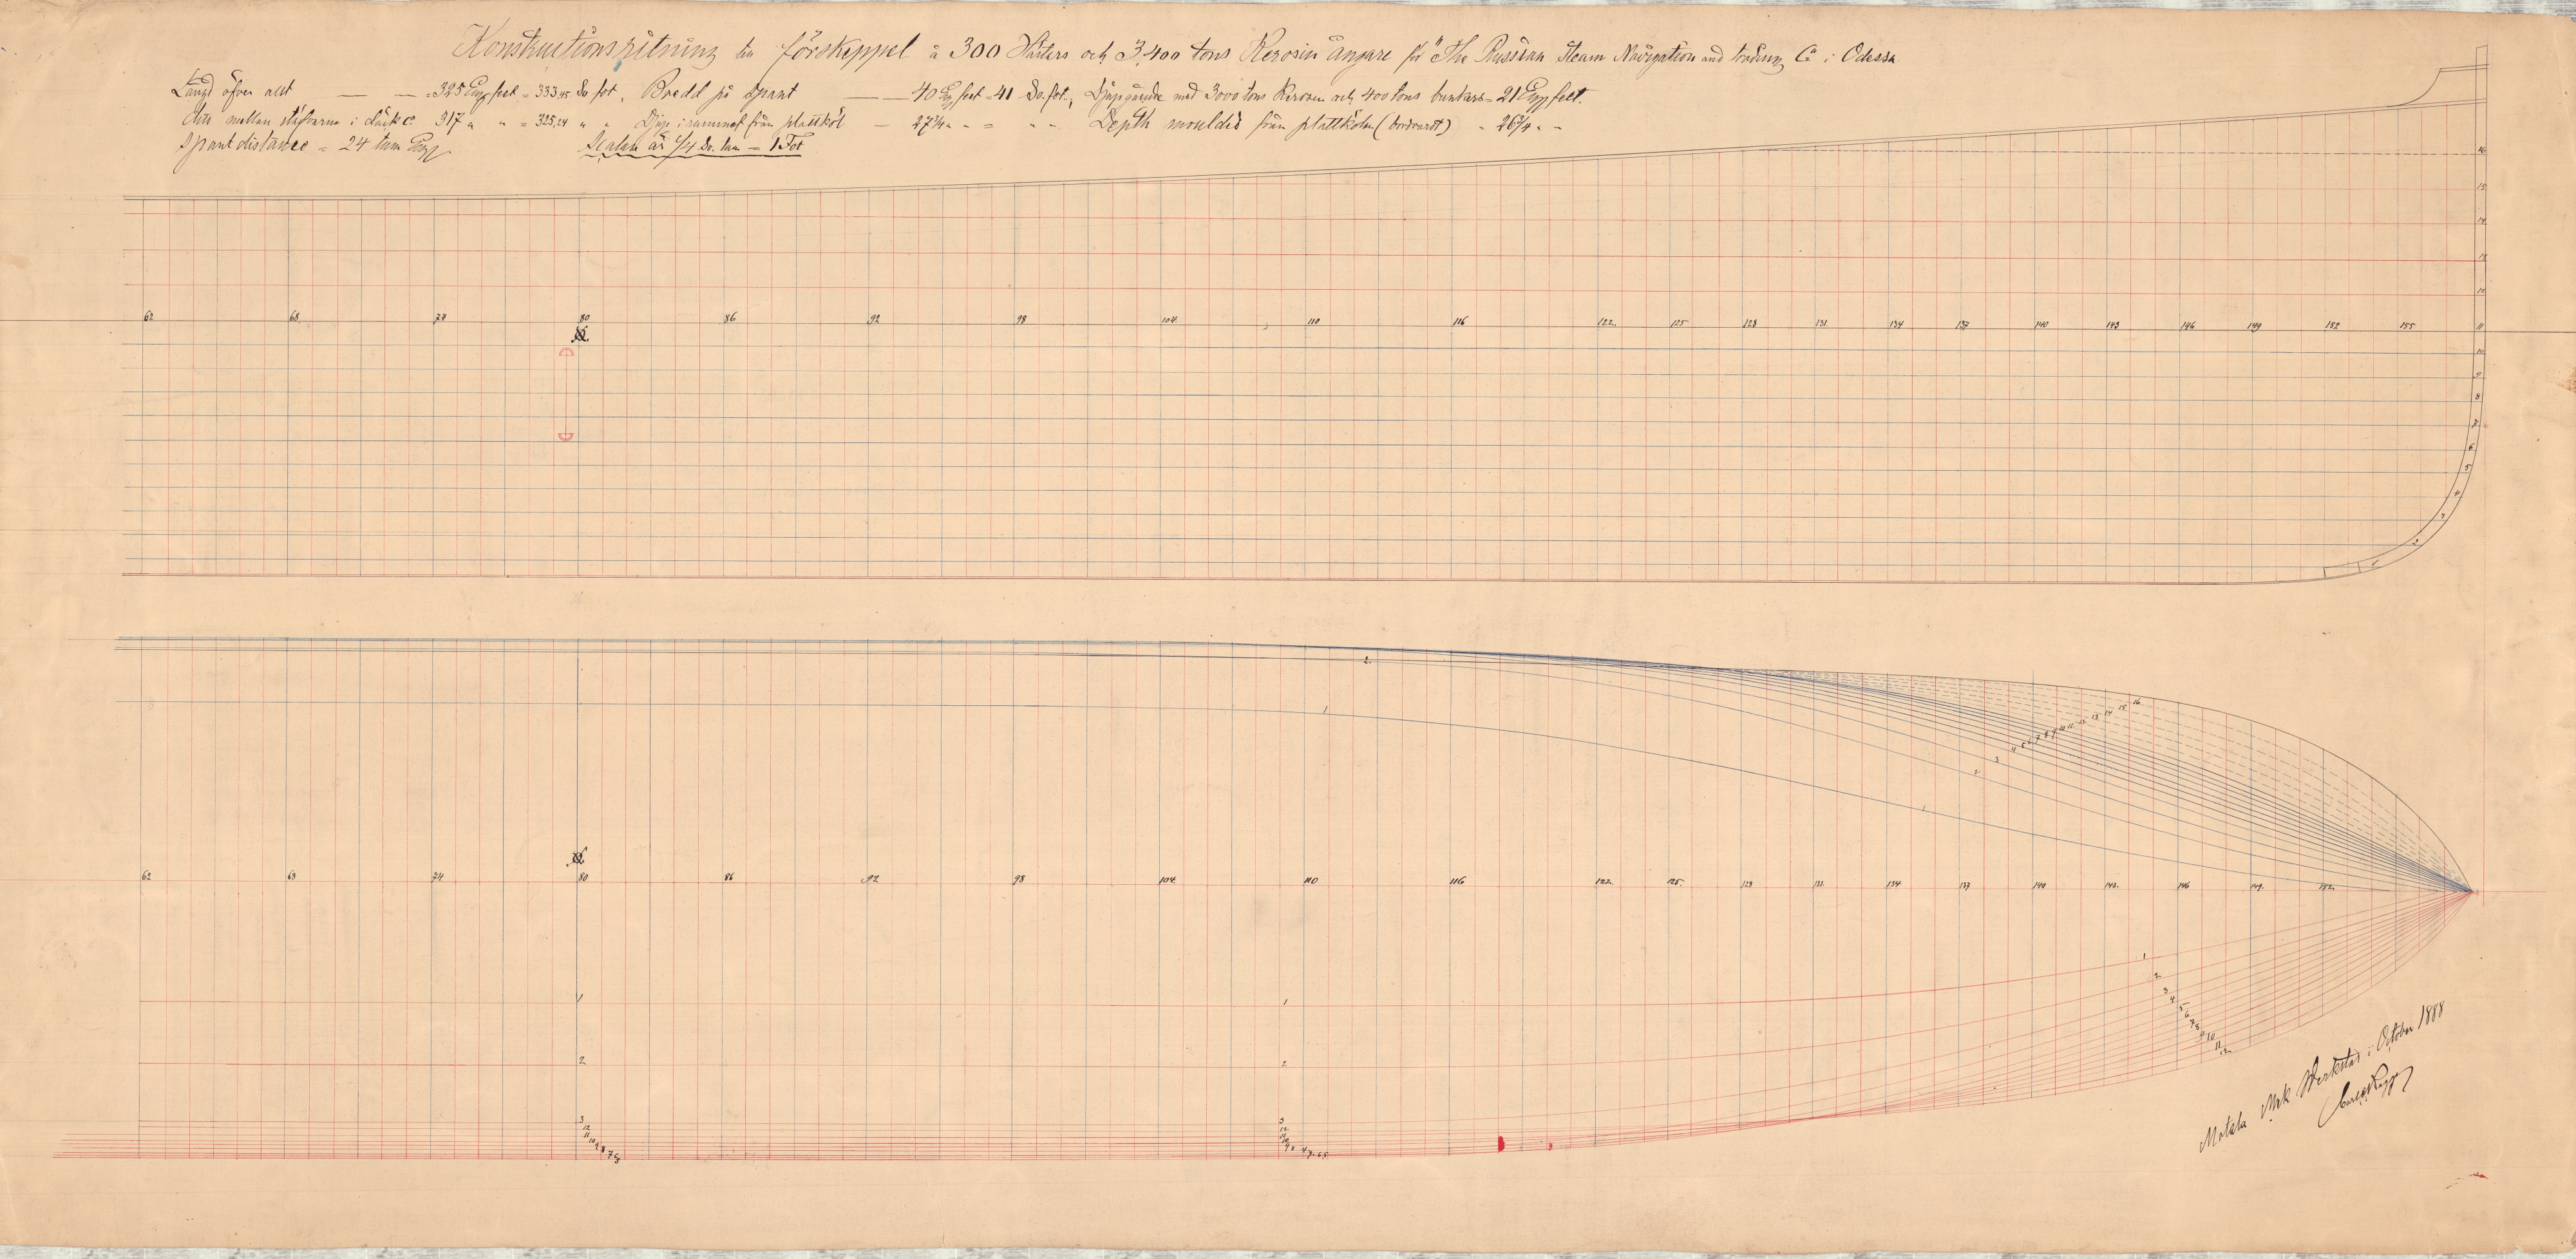 Konstruktionsritning till förskeppet à 300 Hästers och 3,400 tons Kerosin ångare för "The Russian Steam Navigation and trading Co i Odessa
Längd öfver allt — — = 325 Eng feet = 333,45 Sv. fot, Bredd på spant — — 40 Eng feet = 41 Sv. fot, Djupgående med 3000 tons Kerosen och 400 tons bunkers = 21 Eng feet.
Dito mellan stäfvarna i däck 317 " " = 325,24 " " Djup i rummet från plattköl — 27¼ " Depth moulded från plattkölen (bordvardt) - 26¼ "
Spantdistance = 24 tum Eng
Skalan är ¼ Sv. tum = 1 Fot
16
15
14
13
12
62 68 74 80 86 92 98 104 110 116 122 125 128 131 134 137 140 143 146 149 152 155 11
10
9
8
7
6
5
4
3
2
1
2
1
16 15 14 13 12 11 10 9 8 7 6 5 4
3
2
1
62 68 74 80 86 92 98 104 110 116 122 125 128 131 134 137 140 143 146 149 152
1 1 1
2 2 2
3 3 3
12 11 10 9 8 7 6 5
12 11 10 9 8 7 6 5
4 5 6 7 8 9 10 11 12
Motala Mek Werkstad i October 1888